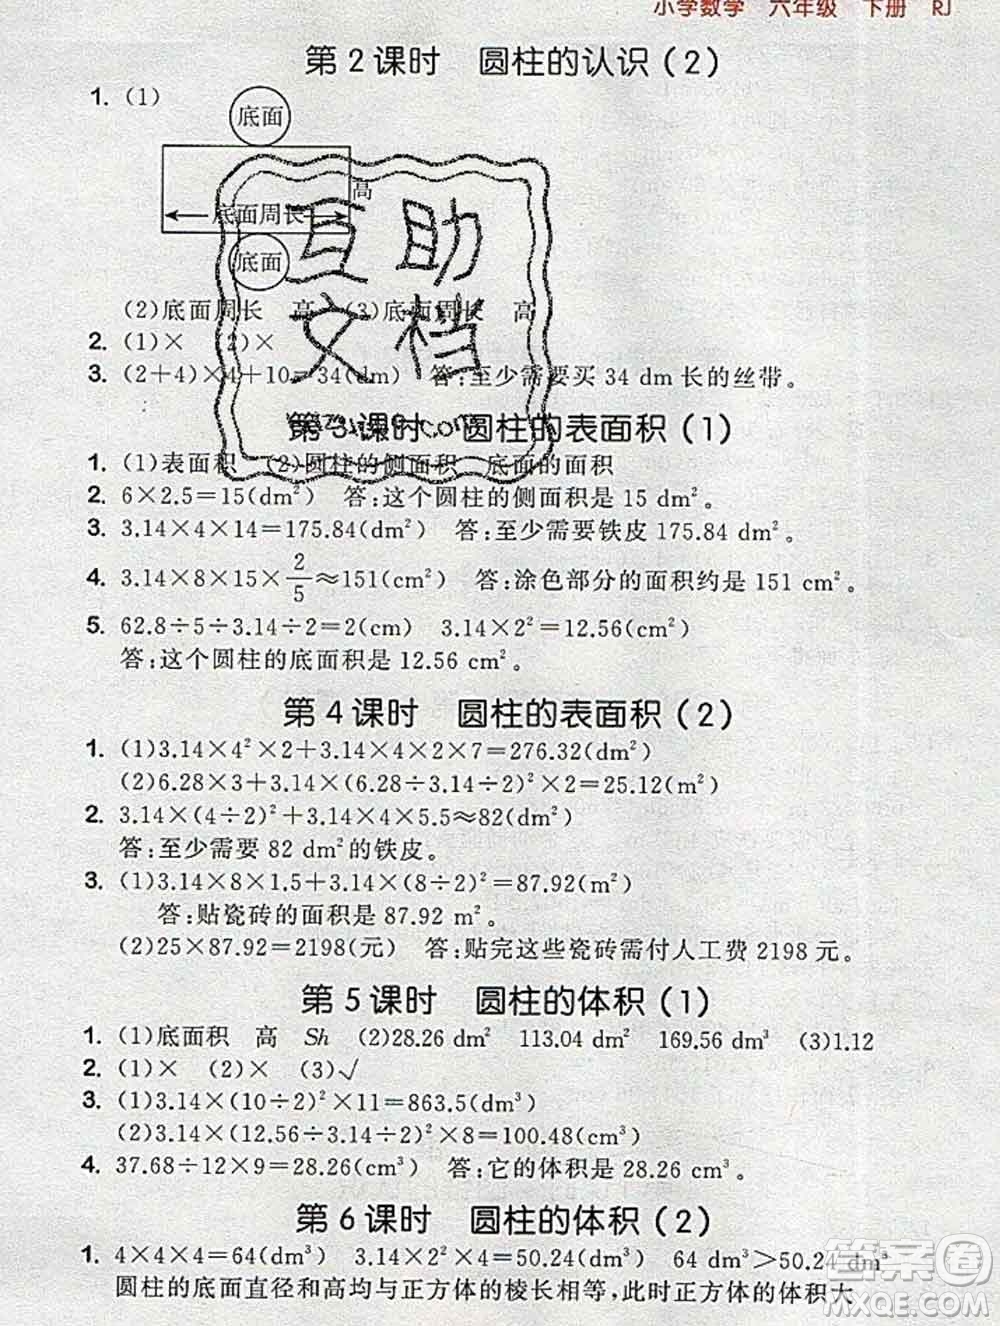 小学数学 六年级 下册 RJ
第2课时 圆柱的认识(2)
1. (1)
底面
高
底面周长
底面
(2)底面周长 高 (3)底面周长 高
2. (1)× (2)×
3. (2+4)×4+10=34(dm) 答:至少需要买 34 dm 长的丝带。
第3课时 圆柱的表面积(1)
1. (1)表面积 (2)圆柱的侧面积 底面的面积
2. 6×2.5=15(dm²) 答:这个圆柱的侧面积是 15 dm²。
3. 3.14×4×14=175.84(dm²) 答:至少需要铁皮 175.84 dm²。
4. 3.14×8×15×2/5≈151(cm²) 答:涂色部分的面积约是 151 cm²。
5. 62.8÷5÷3.14÷2=2(cm) 3.14×2²=12.56(cm²)
答:这个圆柱的底面积是 12.56 cm²。
第4课时 圆柱的表面积(2)
1. (1)3.14×4²×2+3.14×4×2×7=276.32(dm²)
(2)6.28×3+3.14×(6.28÷3.14÷2)²×2=25.12(m²)
2. 3.14×(4÷2)²+3.14×4×5.5≈82(dm²)
答:至少需要 82 dm²的铁皮。
3. (1)3.14×8×1.5+3.14×(8÷2)²=87.92(m²)
答:贴瓷砖的面积是 87.92 m²。
(2)25×87.92=2198(元) 答:贴完这些瓷砖需付人工费 2198 元。
第5课时 圆柱的体积(1)
1. (1)底面积 高 Sh (2)28.26 dm² 113.04 dm² 169.56 dm³ (3)1.12
2. (1)× (2)× (3)√
3. (1)3.14×(10÷2)²×11=863.5(dm³)
(2)3.14×(12.56÷3.14÷2)²×8=100.48(cm³)
4. 37.68÷12×9=28.26(cm³) 答:它的体积是 28.26 cm³。
第6课时 圆柱的体积(2)
1. 4×4×4=64(dm³) 3.14×2²×4=50.24(dm³) 64 dm³>50.24 dm³
圆柱的底面直径和高均与正方体的棱长相等,此时正方体的体积大
互助
文档
答案圈
MXQE.COM